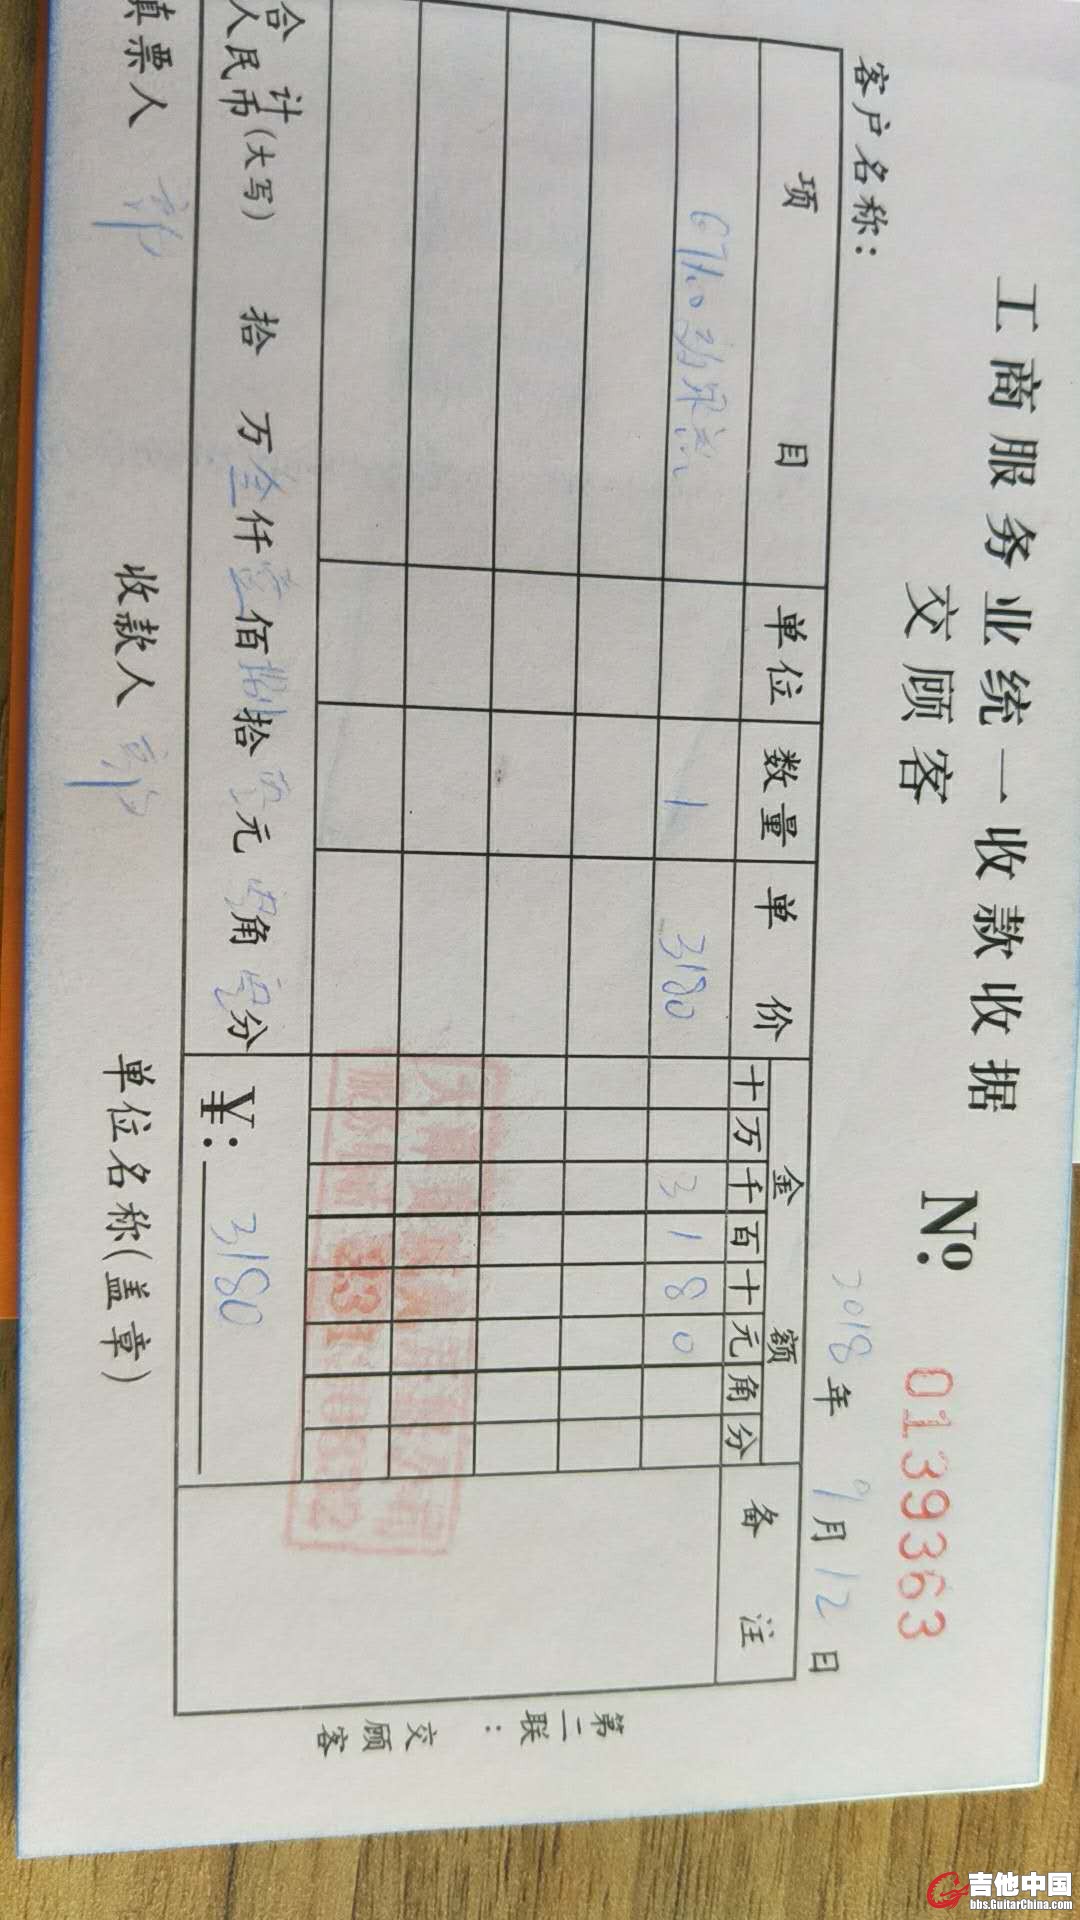 工商服务业统一收款收据
交顾客
№. 0139363
客户名称：
2018年 9月12日
项目 单位 数量 单价 金额 备注
十万千百十元角分
1 3180 3 1 8 0
合计
人民币(大写) 拾 万叁仟壹佰捌拾零元零角零分
¥: 3180
填票人
收款人
单位名称(盖章)
第二联：交顾客
吉他中国
bbs.GuitarChina.com